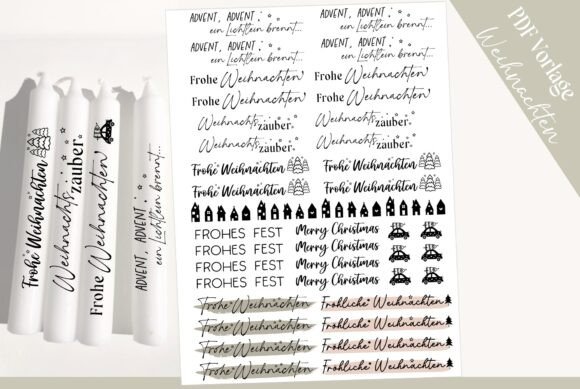 Frohe Weihnachten
Weihnachts
zauber
Frohe Weihnachten
ADVENT, ADVENT,
ein Lichtlein brennt...
ADVENT, ADVENT,
ein Lichtlein brennt...
ADVENT, ADVENT,
ein Lichtlein brennt...
ADVENT, ADVENT,
ein Lichtlein brennt...
ADVENT, ADVENT,
ein Lichtlein brennt...
Frohe Weihnachten
Frohe Weihnachten
Frohe Weihnachten
Frohe Weihnachten
Weihnachts
zauber
Weihnachts
zauber
Weihnachts
zauber
Weihnachts
zauber
Frohe Weihnachten
Frohe Weihnachten
Frohe Weihnachten
Frohe Weihnachten
FROHES FEST Merry Christmas
FROHES FEST Merry Christmas
FROHES FEST Merry Christmas
FROHES FEST Merry Christmas
Frohe Weihnachten Fröhliche Weihnachten
Frohe Weihnachten Fröhliche Weihnachten
Frohe Weihnachten Fröhliche Weihnachten
Frohe Weihnachten Fröhliche Weihnachten
PDF Vorlage
Weihnachten